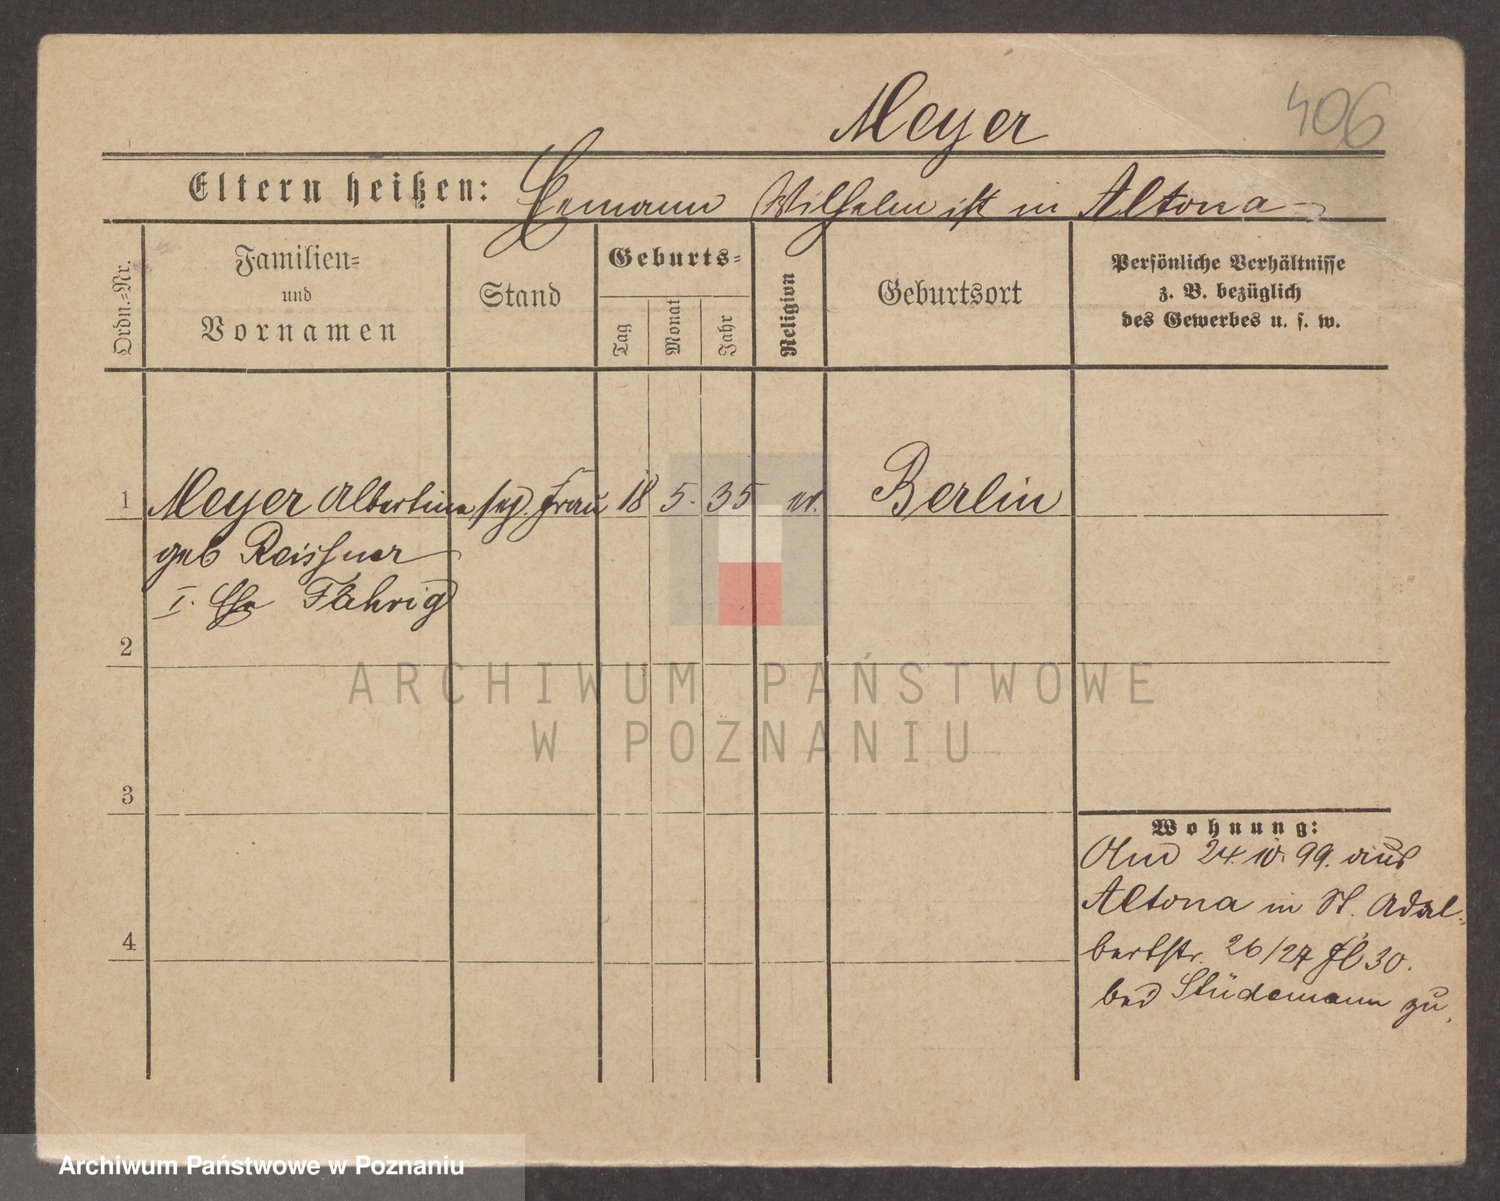 Meyer
406
Eltern heißen: Ehemann Wilhelm ist in Altona
Ordn.-Nr.
Familien-
und
Vornamen
Stand
Geburts-
Tag
Monat
Jahr
Religion
Geburtsort
Persönliche Verhältnisse
z. B. bezüglich
des Gewerbes u. s. w.
1 Meyer Albertine sep. Frau 18 5. 35 ev. Berlin
geb Reissner
I. Ehe Fährig
2
3
4
Wohnung:
24. 10. 99. aus
Altona in St. Adal-
bertstr. 26/27
bei Stüdemann zu.
ARCHIWUM PAŃSTWOWE
W POZNANIU
Archiwum Państwowe w Poznaniu